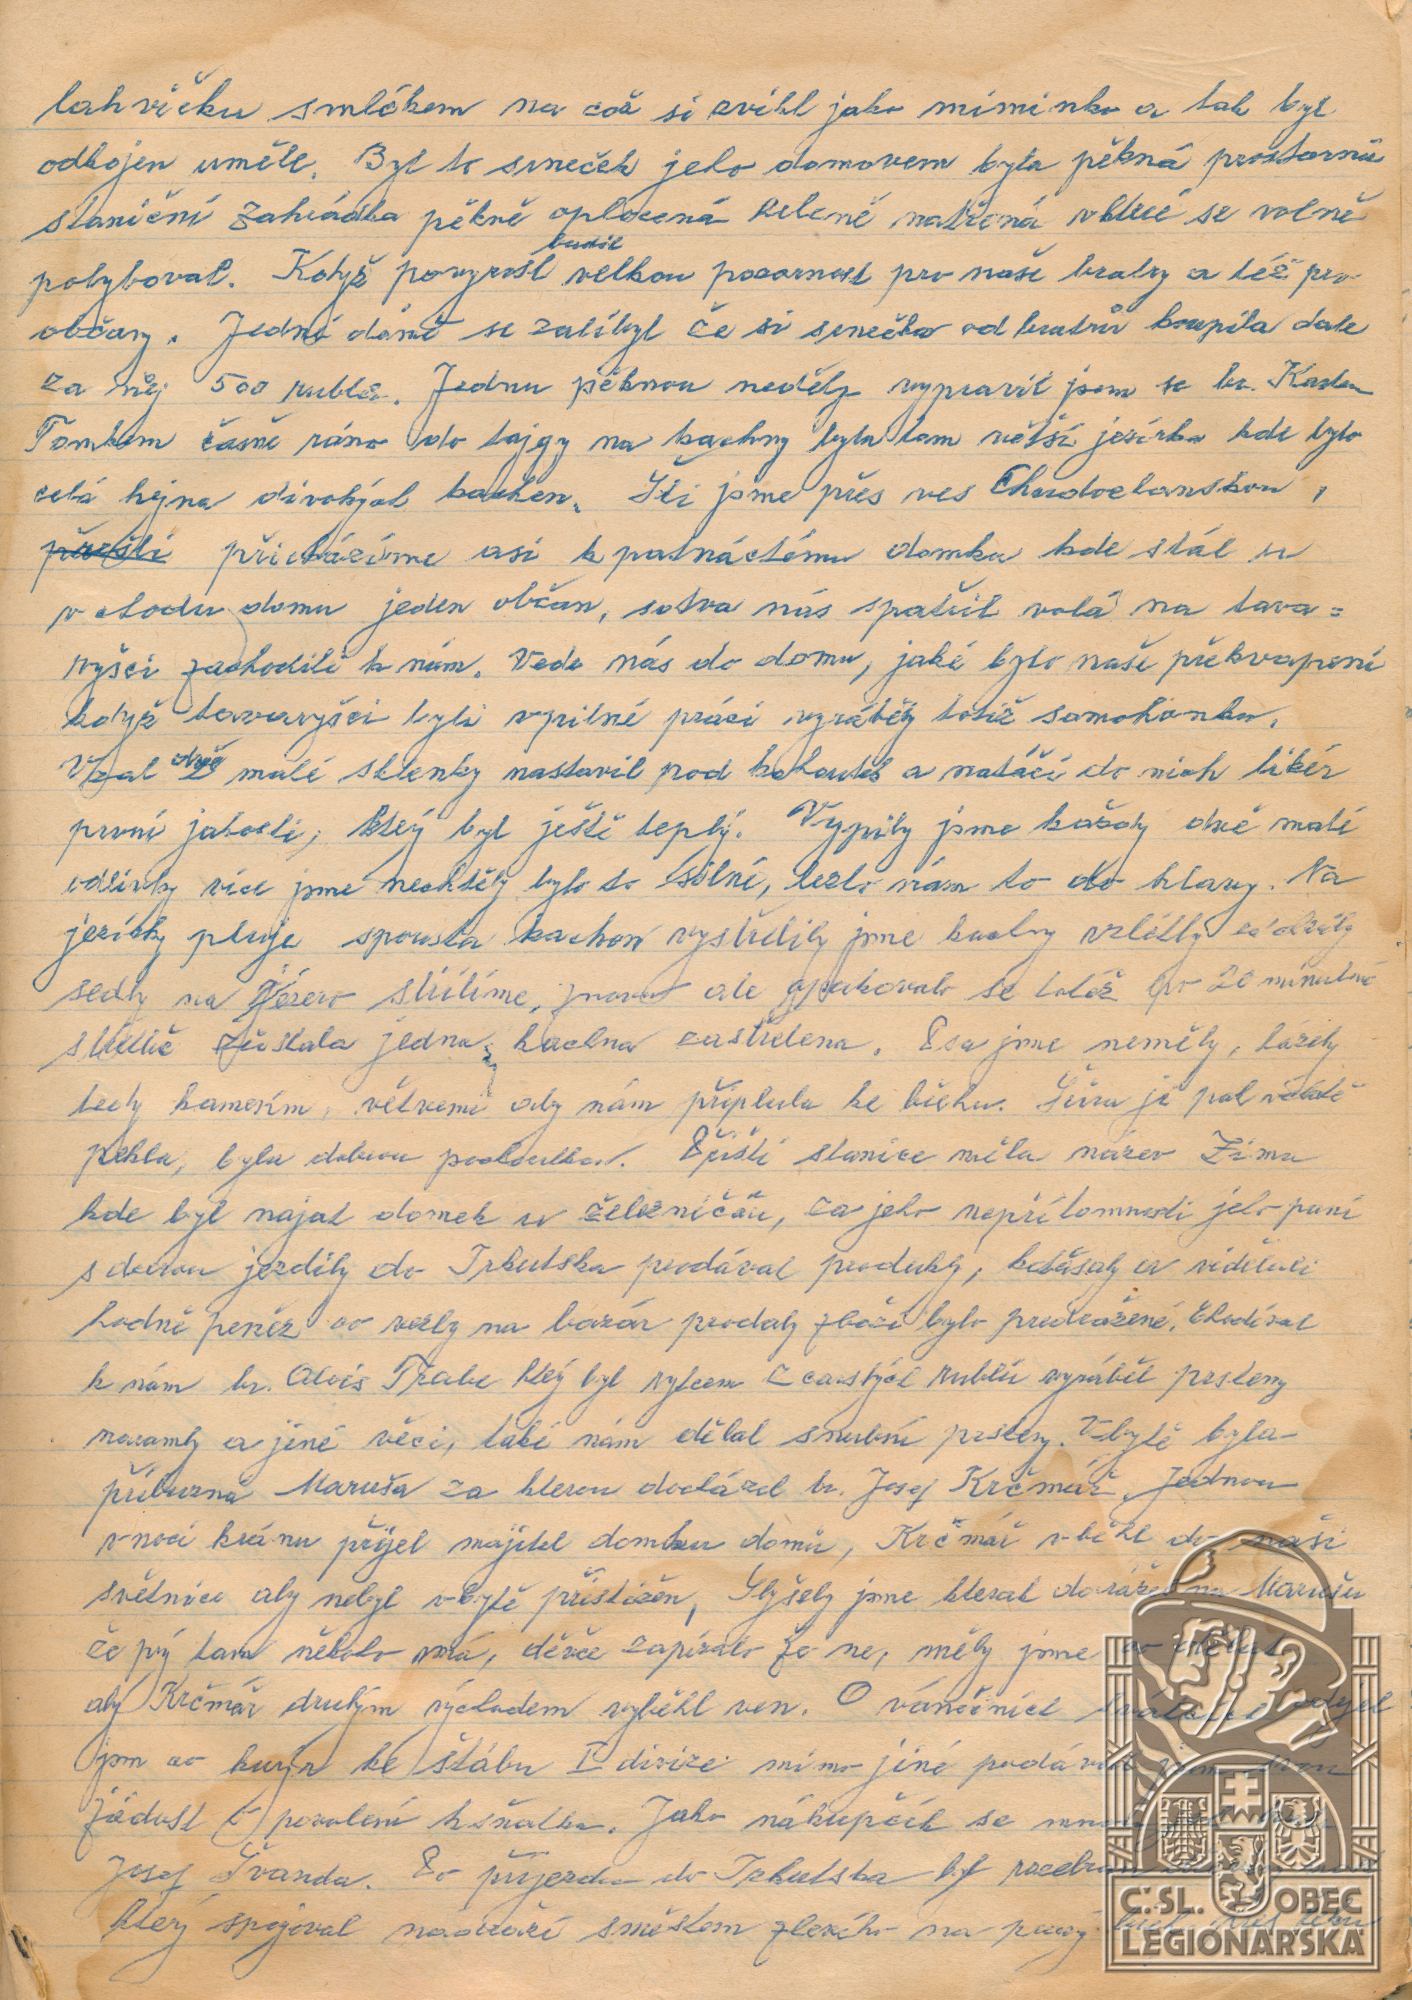 lahvičku smlékem na což si zvikl jako miminko a tak byl
odkojen uměle. Byl to sameček jeho domovem byla pěkná prostorná
staniční zahrádka pěkně oplocená zeleně natřená vkteré se volně
pohyboval. Když povyrostl budil velkou pozornost pro naše bratry a též pro
občany. Jedné dámě se zalíbyl že si samečka od bratrů koupila dala
za něj 500 rublů. Jednu pěknou neděly vypravil jsem se br. Karlem
Tomkem časně ráno do tajgy na kachny byla tam větší jezírka kde bylo
celá hejna divokých kachen. Šli jsme přes ves Chudoelanskou,
přešli přicházíme asi k patnáctému domku kde stál u
vchodu domu jeden občan, sotva nás spatřil volá na tava=
ryšči zachodili k nám. Vede nás do domu, jaké bylo naše překvapení
když tavaryšci byli vpilné práci vyráběly totiž samohonku.
Vzal dvě malé sklenky nastavil pod kohoutek a natáčí do nich likér
první jakosti, kteý byl ještě teplý. Vypily jsme každy dvě malé
odlivky více jsme nechtěly bylo to silné, lezlo nám to do hlavy. Na
jezírky pluje spousta kachen vystřelily jsme kachny vzlétly
sedly na jezero střílíme, znovu ale opakovalo se totéž po 20 minutové
střelbě zůstala jedna kachna zastřelena. Psa jsme neměly, házely
tedy kamením, větvemi aby nám připlula ke břehu. Šúra jí pak
pekla, byla dobrou pochoutkou. Příští stanice měla název Zima
kde byl najat domek u železničáře, za jeho nepřítomnosti jeho paní
s dcerou jezdily do Irkutska prodávat produkty, koťásaly a viděla
hodně peněz co vezly na bazár prodaly zboží bylo předražené. Chodíval
k nám br. Alois Trabe kteý byl rytcem z carských rublů vyráběl prsteny
naramky a jiné věci, také nám dělal snubní prsteny. V bytě byla
příbuzná Maruša za kterou docházel br. Josef Krčmář. Jednou
v noci kránu přijel majitel domku domů, Krčmář vběhl do naši
světnice aby nebyl v bytě přistižen, Slyšely jsme kterak doráže na Marušu
že prý tam někoho má, děvče zapíralo že ne, měly jsme co dělat
aby Krčmář druhým východem vyběhl ven. O vánočních svátcích odjel
jsm co kurýr ke štábu I divize mimo jiné podával jsem svou
žádost o povolení k sňatku. Jako nákupčík se mnou jel
Josef Švanda. Po příjezdu do Irkutska byl rozebrán
který spojoval nádraží smětem zlevého na pravý břeh
ČSL. OBEC
LEGIONÁŘSKÁ